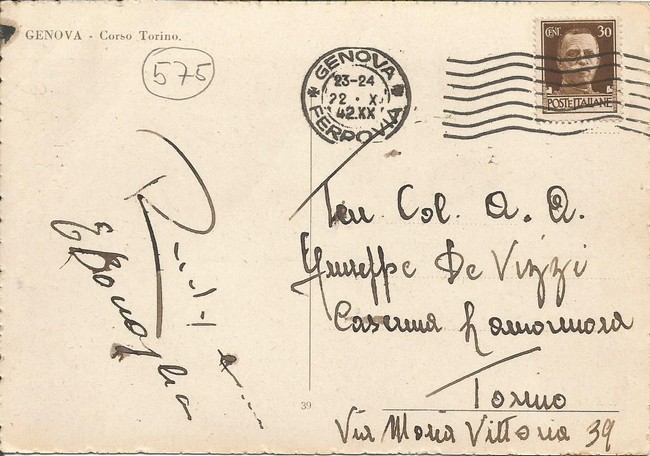 GENOVA - Corso Torino.
575
GENOVA
23-24
22 · X
42.XX
FERROVIA
CENT. 30
POSTE ITALIANE
Ten Col. A. A.
Giuseppe De Vizzi
Caserma Lamarmora
Torino
Via Maria Vittoria 39
39